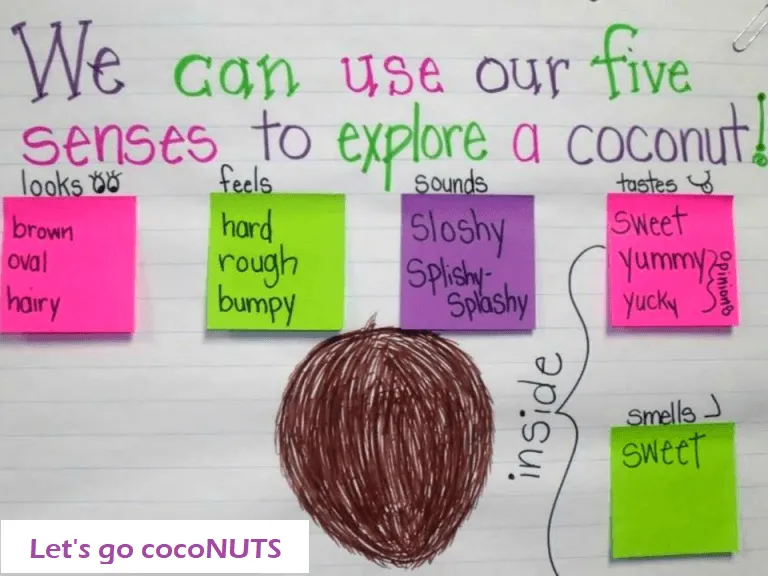 We can use our five
senses to explore a coconut!
looks
brown
oval
hairy
feels
hard
rough
bumpy
sounds
Sloshy
Splishy-
Splashy
tastes
Sweet
yummy
yucky
Opinions
inside
smells
Sweet
Let's go cocoNUTS